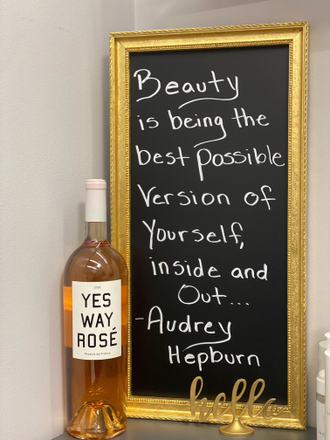 Beauty
is being the
best possible
Version of
Yourself,
inside and
Out...
-Audrey
Hepburn
YES
WAY
ROSÉ
hello